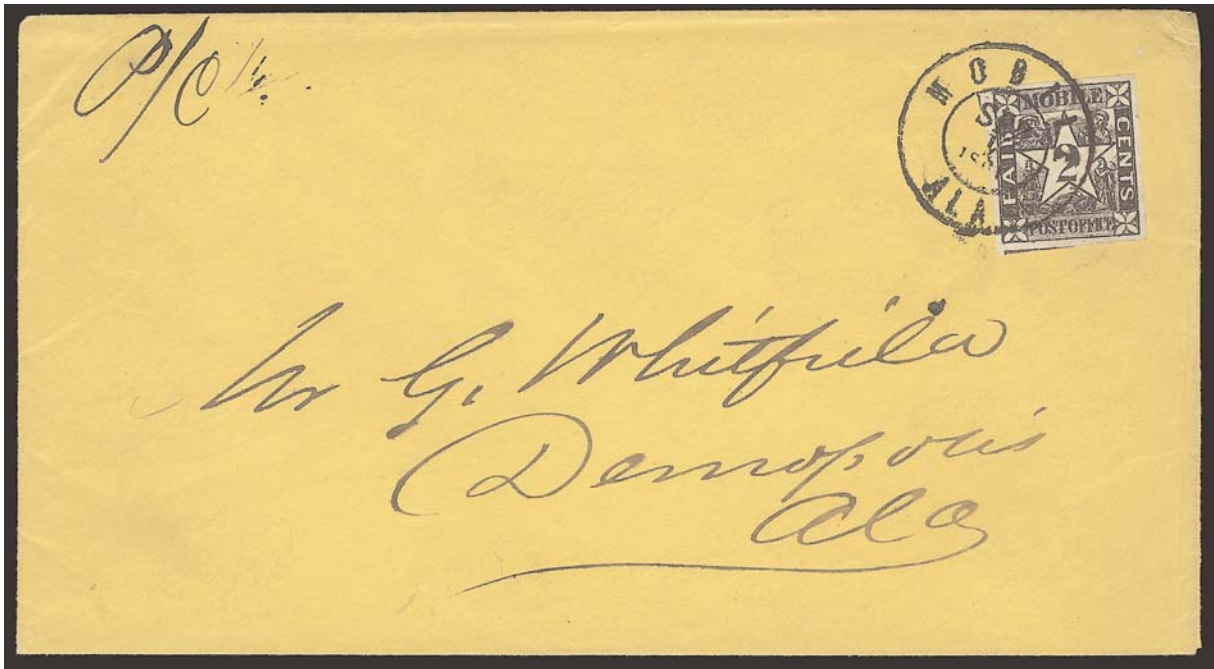 P/C
MOBI
S
18
ALA
MOBILE
PAID
2
CENTS
POST OFFICE
Mr G. Whitfield
Demopolis
Ala